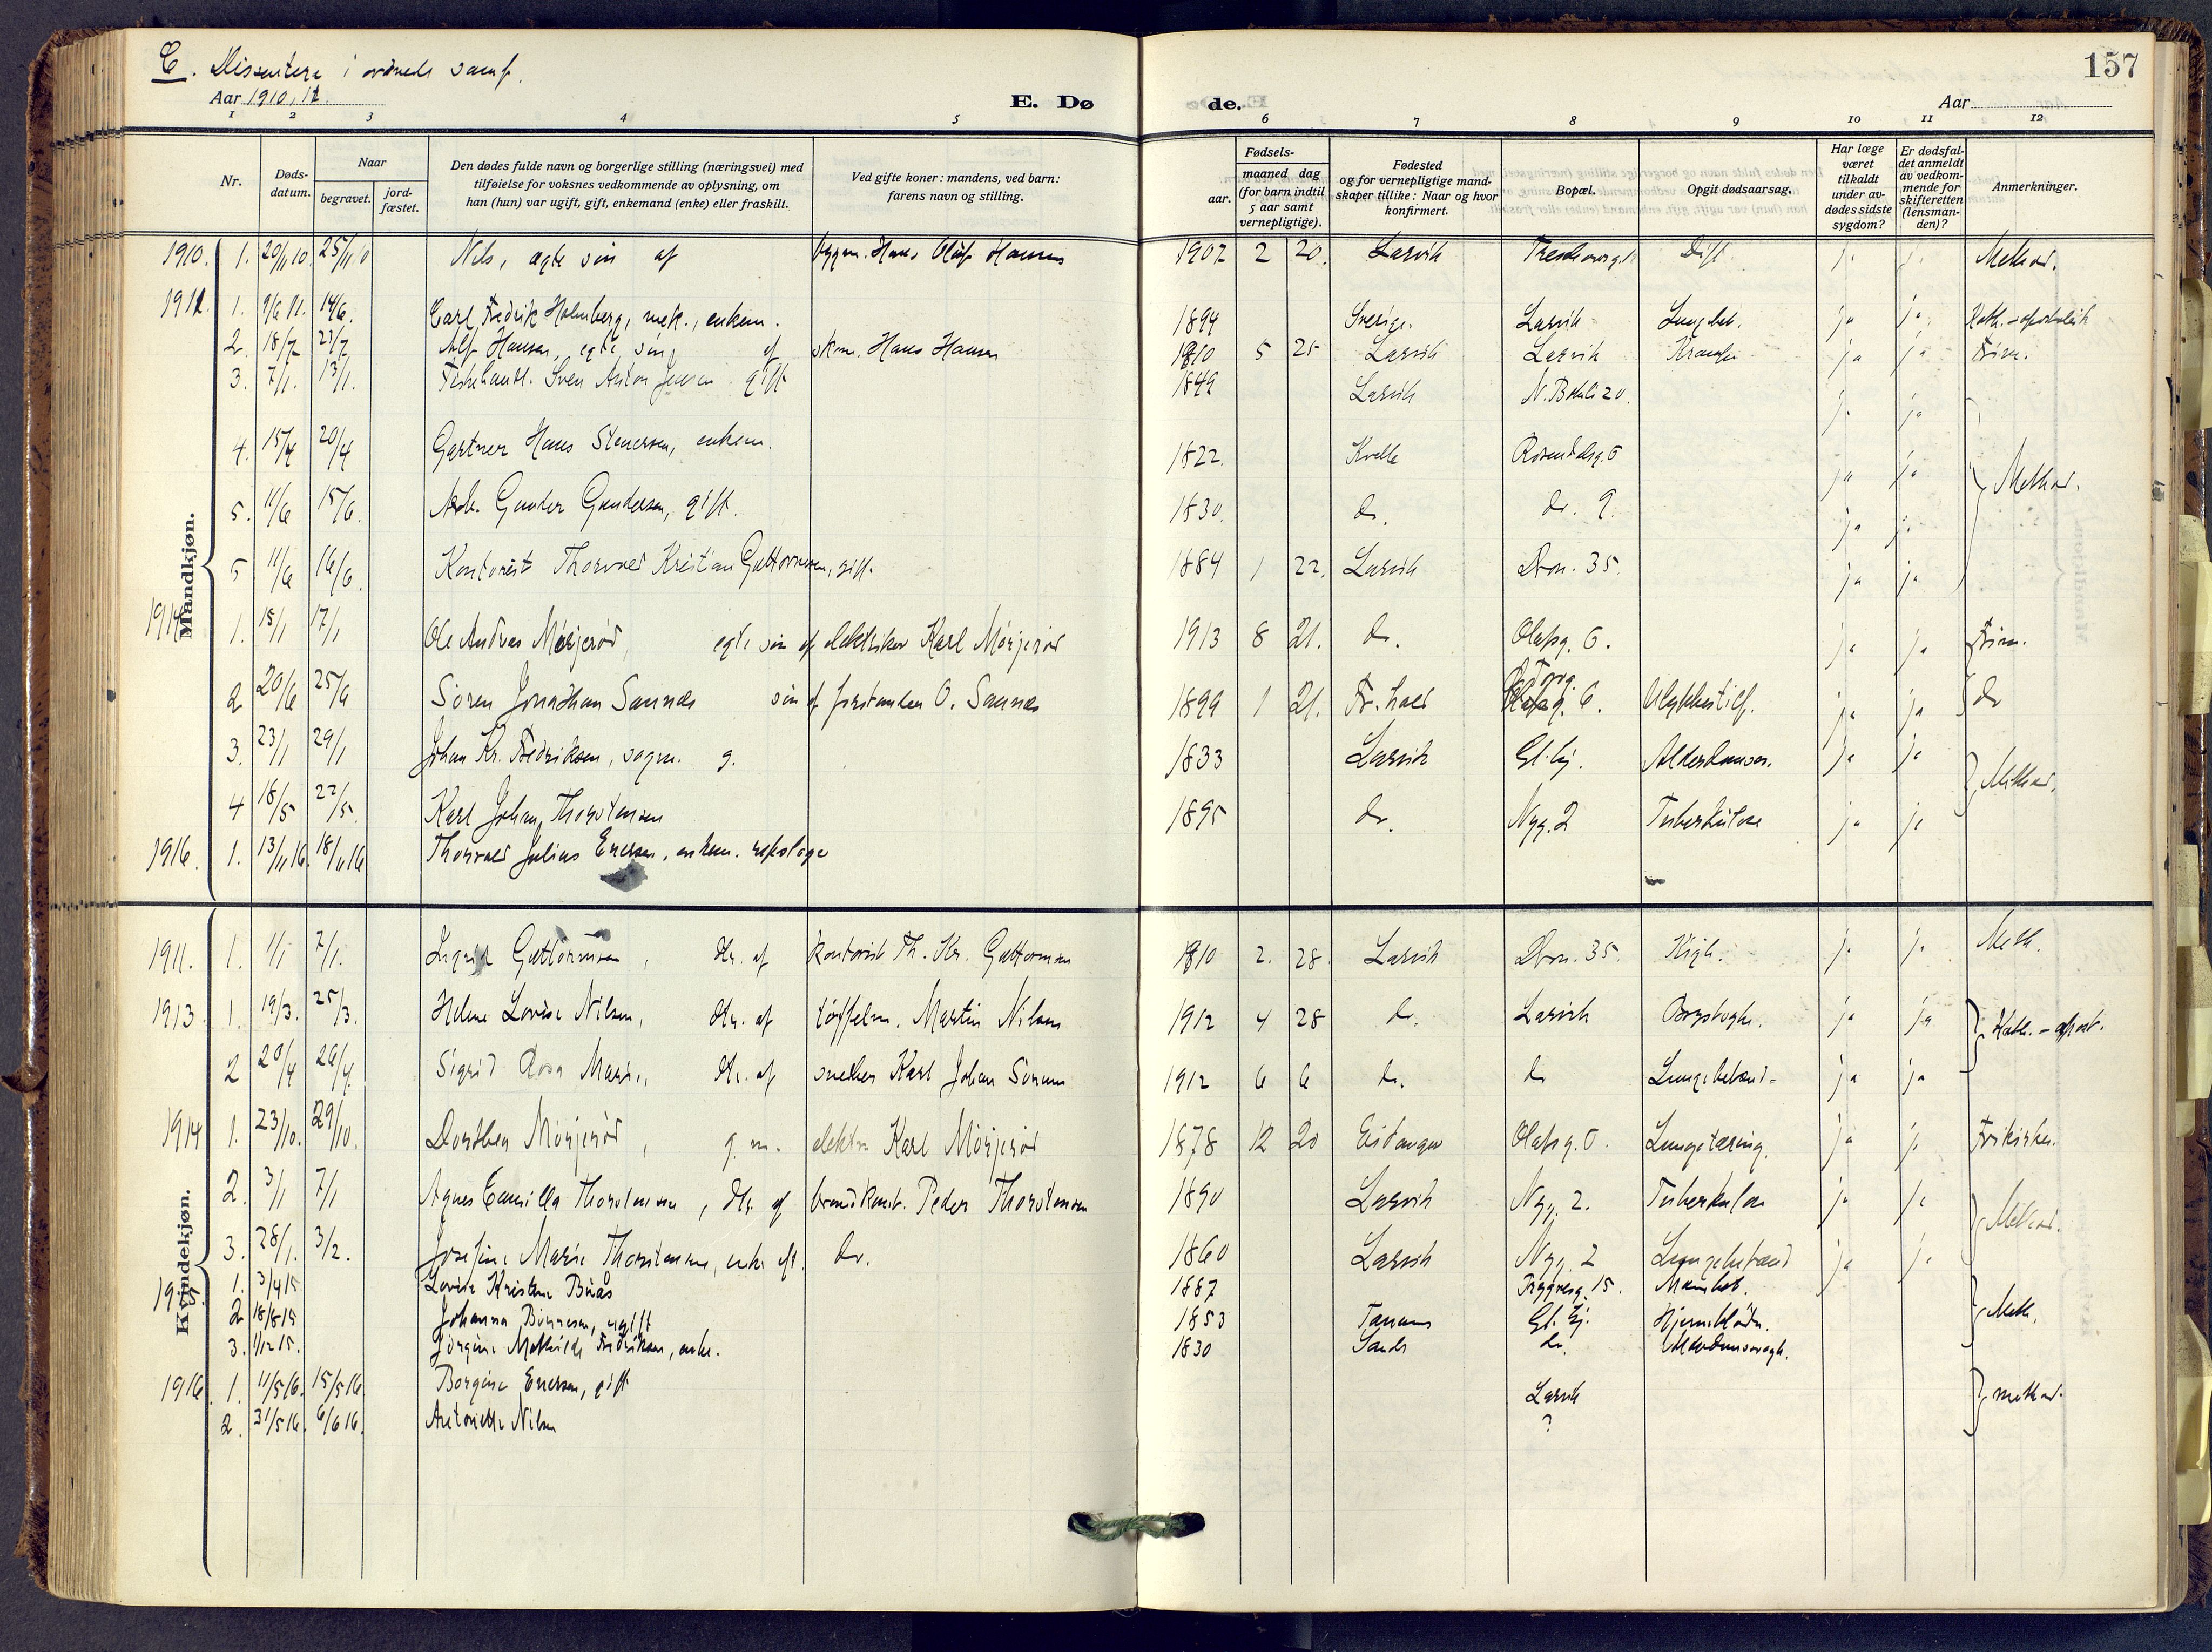 C. Dissentere i ordnede samf.
157
Aar 1910, 12.
E. Dø
de.
Aar
1 2 3 4 5 6 7 8 9 10 11 12
Nr.
Døds-datum.
Naar
begravet.
jord-fæstet.
Den dødes fulde navn og borgerlige stilling (næringsvei) med
tilføielse for voksnes vedkommende av oplysning, om
han (hun) var ugift, gift, enkemand (enke) eller fraskilt.
Ved gifte koner: mandens, ved barn:
farens navn og stilling.
Fødsels-
aar.
maaned dag
(for barn indtil
5 aar samt
vernepligtige).
Fødested
og for vernepligtige mand-
skaper tillike: Naar og hvor
konfirmert.
Bopæl.
Opgit dødsaarsag.
Har læge
været
tilkaldt
under av-
dødes sidste
sygdom?
Er dødsfal-
det anmeldt
av vedkom-
mende for
skifteretten
(lensman-
den)?
Anmerkninger.
Mandkjøn.
1910. 1. 20/11 10. 25/11 10 Nils, ægte søn af bygm. Hans Oluf Hansen 1907 2 20. Larvik Dift. ja ja Method.
1912. 1. 9/6 14/6. Carl Fredrik Holmberg, mek., enkem. 1894 Sverige. Larvik Lungebet. ja ja Kath.-apostolisk
2. 18/7 23/7 Alf Hansen, egte søn af skm. Hans Hansen 1910 5 25 Larvik Larvik Krampe ja ja Frim.
3. 7/1. 13/1. Fiskehandl. Sven Anton Jensen gift 1849 Larvik 20. ja ja
4. 15/4 20/4 Gartner Hans Stenersen, enkem. 1822. Kvelle Rosendalsg. 6 ja ja Methodi.
5. 11/6 15/6. Arb. Gunder Gundersen, gift. 1830. do. do. 9. ja ja
5 11/6 16/6. Kontorist Thorvald Kristian Guttormsen, gift. 1884 1 22. Larvik Dron. 35. ja ja
1914 1. 15/1 17/1 Ole Andreas Mörjeröd, egte søn af elektriker Karl Mörjeröd 1913 8 21. do. Olafsg. 6. ja ja Frim.
2 20/6 25/6 Sören Jonathan Saunes søn af forstander O. Saunes 1899 1 21. Fr.hald Torvg. 6. Ulykkestilf. ja ja do
3. 23/1 29/1 Johan Kr. Fredriksen, vogm. g. 1833 Larvik Gl.hj. Alderdomssv. ja ja
4 18/5 22/5. Karl Johan Thorstensen 1895 do. Nyg. 2 Tuberkulose ja ja Methodi.
1916. 1. 13/11 16. 18/11 16 Thorvald Julius Enersen, enkem. repslager
Kvindekjøn.
1911. 1. 1/1 7/1. Ingrid Guttormsen, dtr. af kontorist Th. Kr. Guttormsen 1910 2. 28. Larvik Dron. 35. Kigh. ja ja Meth.
1913 1. 19/3. 25/3. Helene Lovise Nilsen, dtr. af töffelm. Martin Nilsen 1912 4 28 do. Larvik ja ja Kath.-apost.
2 20/4 26/4. Sigrid Rosa Marie, dtr. af snedker Karl Johan Sörum 1912 6 6 do. do Lungebetænd- ja ja
1914 1. 23/10. 29/10. Dorthea Mörjeröd, g. m. elektr. Karl Mörjeröd 1878 12 20 Eidanger Olafsg. 6. Lungetæring. ja ja Frikirken.
2. 3/1 7/1 Agnes Camilla Thorstensen, dtr. af Peder Thorstensen 1890 Larvik Nyg. 2. Tuberkulose ja ja Methodi.
3. 28/1. 3/2. Josefine Marie Thorstensen, enke eft. do. 1860 Larvik Nyg. 2 Lungebetænd ja ja
1915. 1. 3/4 15 Lovise Kristine Buås 1887 Tryggvesg. 15.
2 18/8 15 Johanna Bonnesen, ugift 1853 Tanum Gl. hj. Hjerneblödn. Meth.
3. 1/12 15. Jörgine Mathilde Fredriksen, enke. 1830 Sande do. Alderdomssvagh.
1916. 1. 11/5 16. 15/5 16 Borgine Enersen, gift Larvik method.
2. 31/5 16. 6/6 16. Antonette Nilsen ?